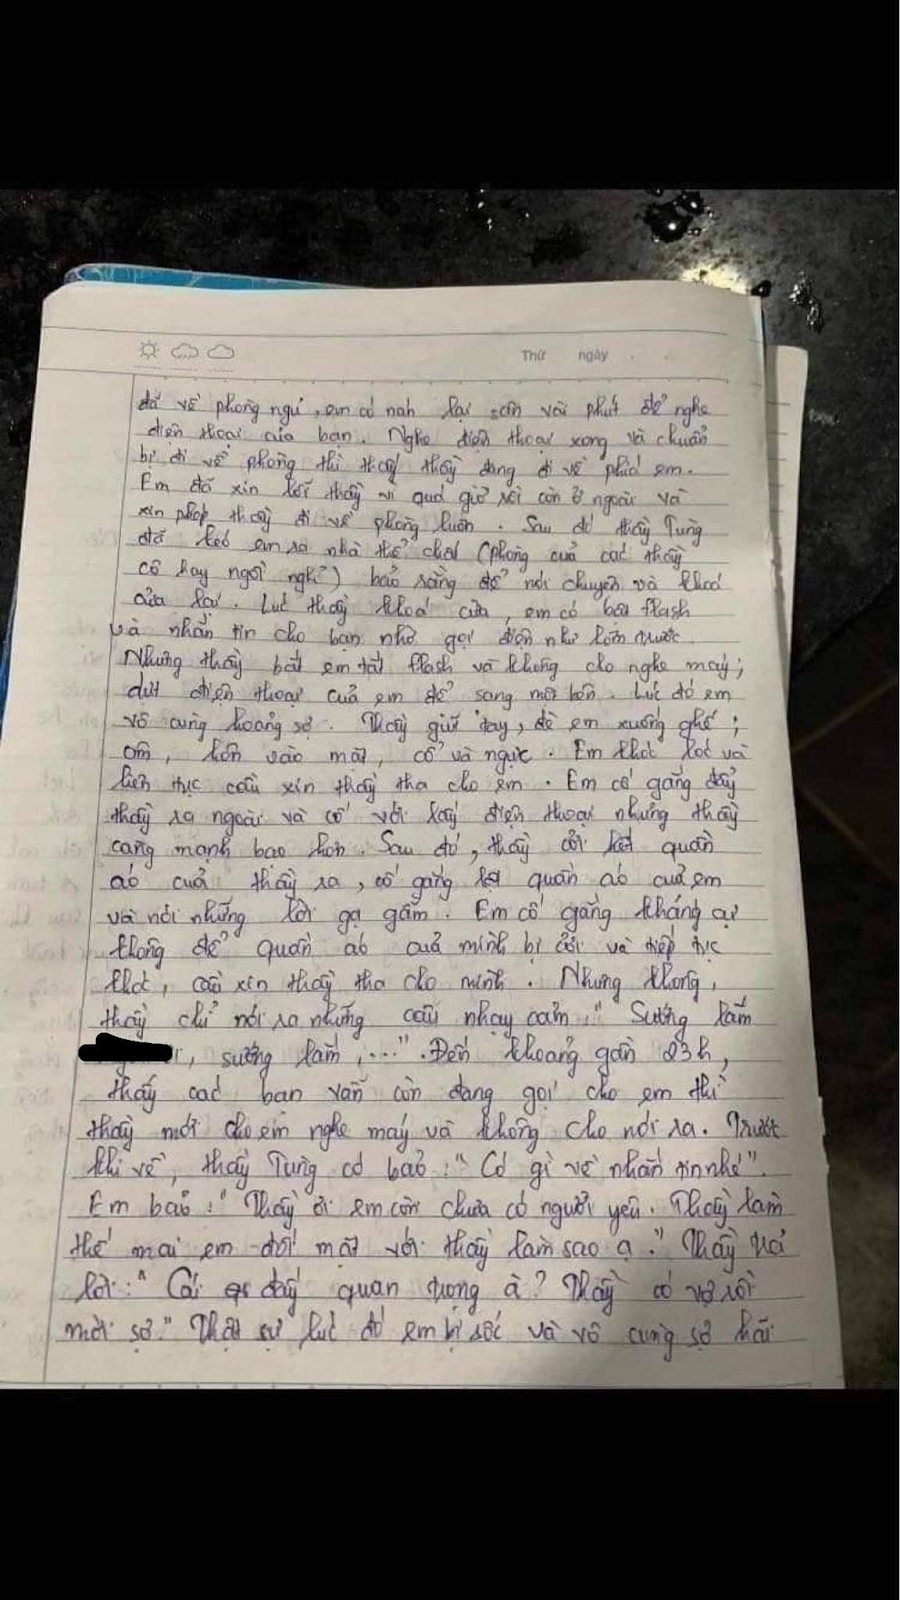 Thứ ngày
đã về phòng ngủ, em có nán lại vài phút để nghe
điện thoại của bạn. Nghe điện thoại xong và chuẩn
bị đi về phòng thì thấy thầy đang đi về phía em.
Em đã xin lỗi thầy vì quá giờ rồi còn ở ngoài và
xin phép thầy đi về phòng luôn. Sau đó thầy Tùng
đã kéo em ra nhà thể chất (phòng của các thầy
cô hay ngồi nghỉ) bảo rằng để nói chuyện và khoá
cửa lại. Lúc thầy khoá cửa, em có bật flash
và nhắn tin cho bạn nhờ gọi điện như hôm trước.
Nhưng thầy bắt em tắt flash và không cho nghe máy;
dứt điện thoại của em để sang một bên. Lúc đó em
vô cùng hoảng sợ. Thầy giữ tay, đè em xuống ghế;
ôm, hôn vào mặt, cổ và ngực. Em khóc lóc và
liên tục cầu xin thầy tha cho em. Em cố gắng đẩy
thầy ra ngoài và cố với lấy điện thoại nhưng thầy
càng mạnh bạo hơn. Sau đó, thầy cởi hết quần
áo của thầy ra, cố gắng quần áo của em
và nói những lời gạ gẫm. Em cố gắng kháng cự
không để quần áo của mình bị cởi và tiếp tục
khóc, cầu xin thầy tha cho mình. Nhưng không,
thầy chỉ nói ra những câu nhạy cảm: "Sướng lắm
, sướng lắm,...". Đến khoảng gần 23h,
thấy các bạn vẫn còn đang gọi cho em thì
thầy mới cho em nghe máy và không cho nói ra. Trước
khi về, thầy Tùng có bảo: "Có gì về nhắn tin nhé".
Em bảo: "Thầy ơi em còn chưa có người yêu. Thầy làm
thế mai em đối mặt với thầy làm sao ạ." Thầy trả
lời: "Cái đấy quan trọng à? Thầy có vợ rồi
mới sợ." Thật sự lúc đó em bị sốc và vô cùng sợ hãi